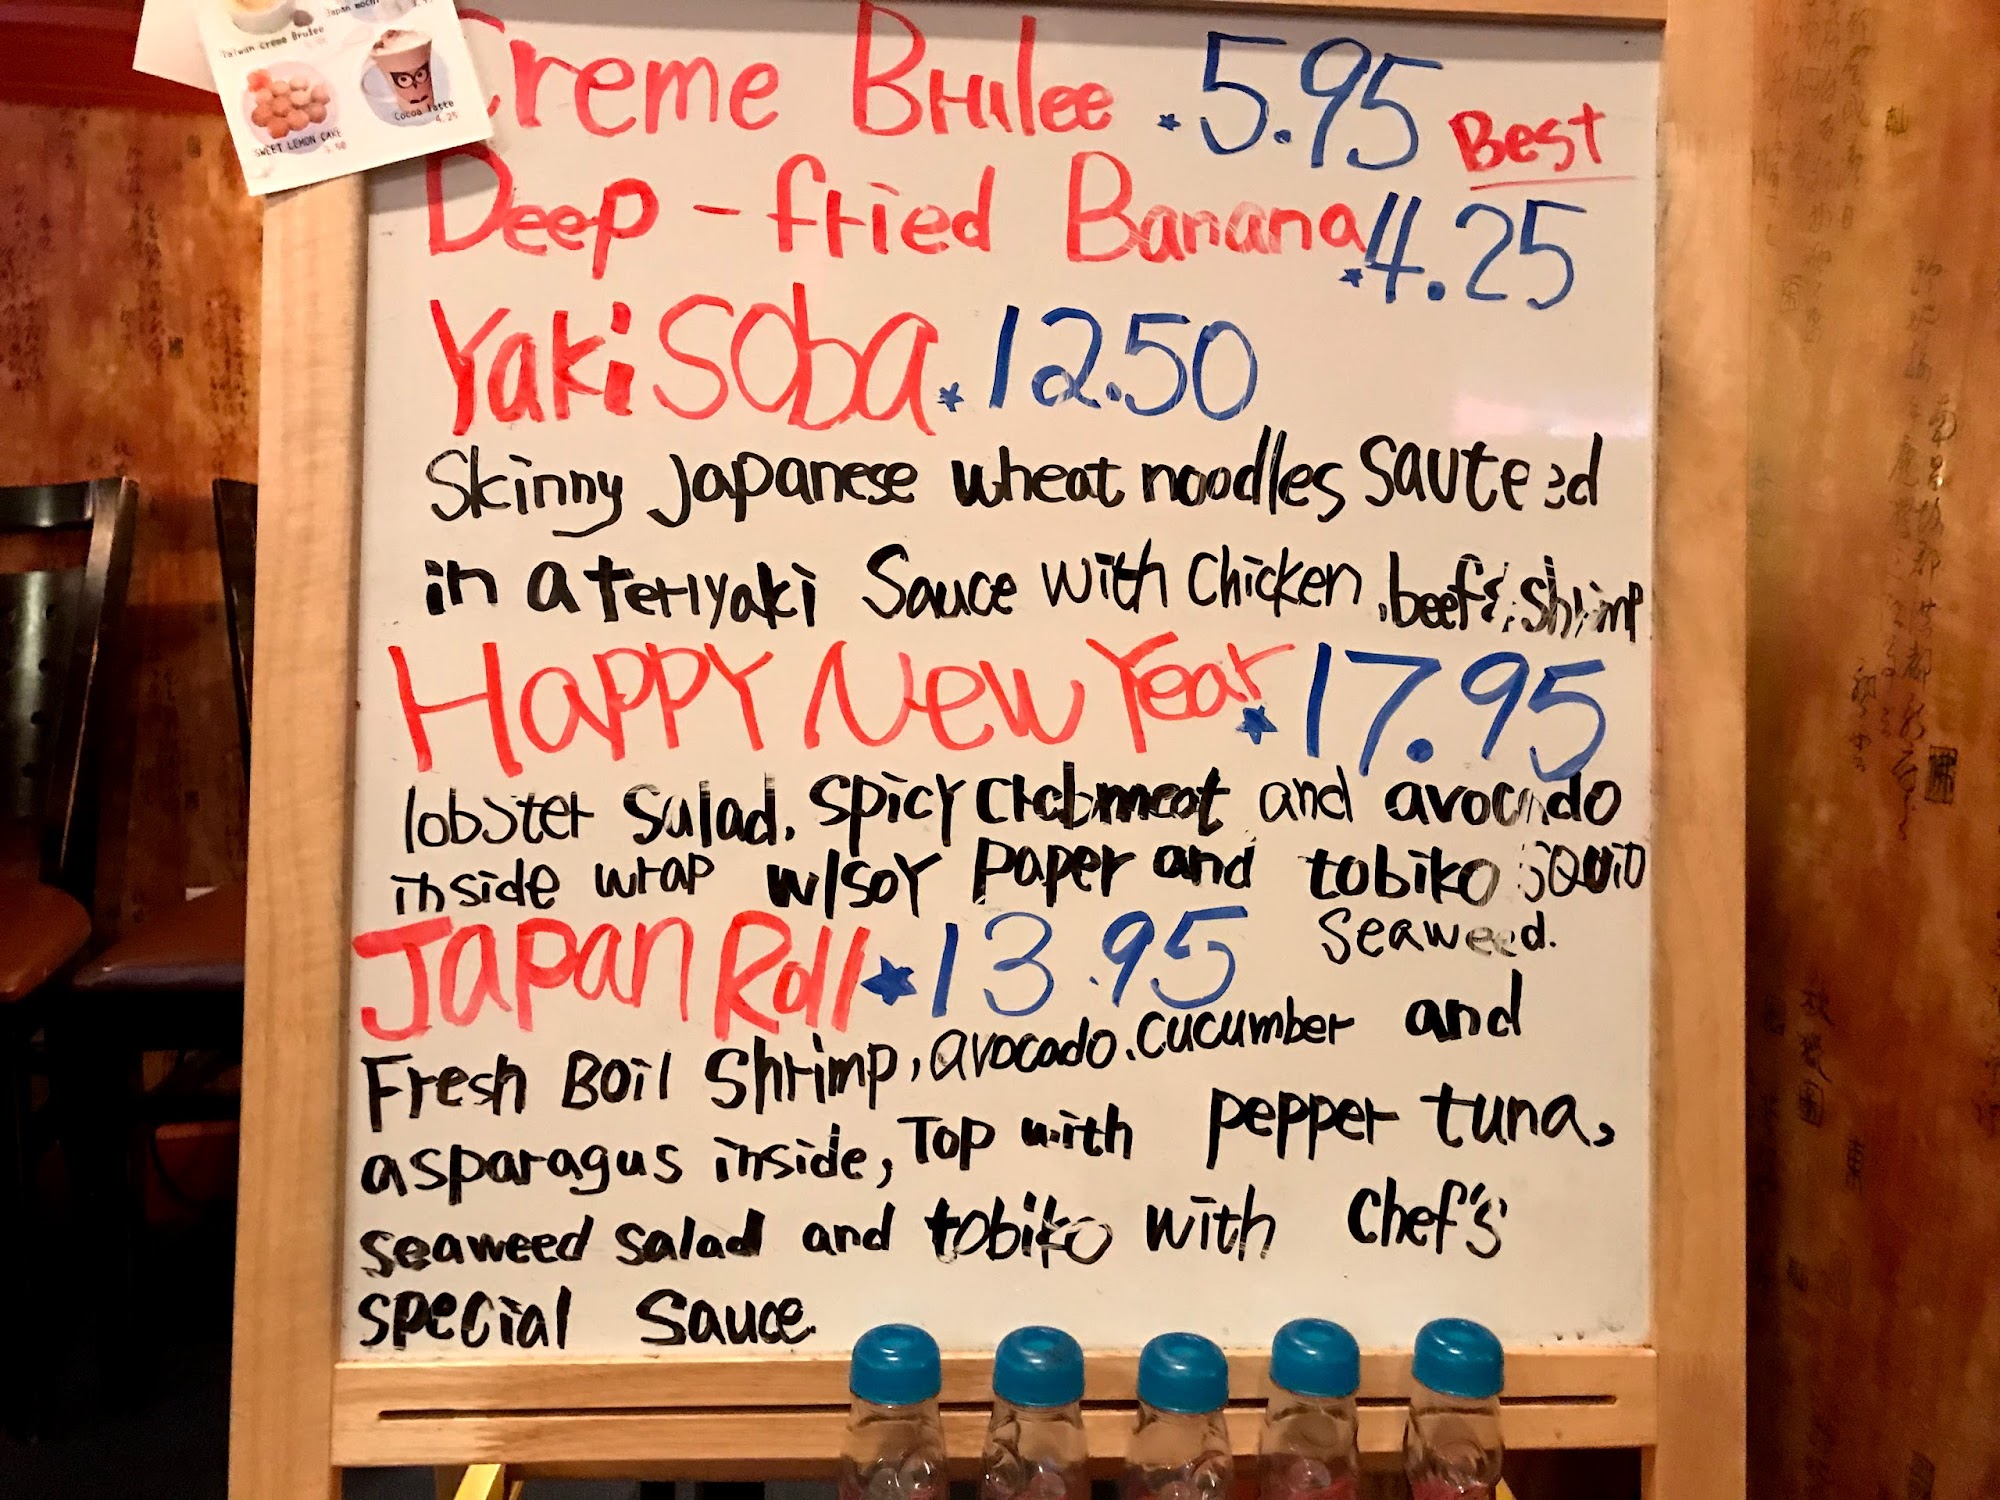 Japan mochi
Taiwan Creme Brulee
Cocoa latte
4.25
SWEET LEMON CAKE
Creme Brulee 5.95
Best
Deep-fried Banana 4.25
Yaki Soba 12.50
Skinny Japanese wheat noodles sauteed
in a teriyaki sauce with chicken, beef & shrimp
Happy New Year 17.95
lobster salad. spicy crabmeat and avocado
inside wrap w/soy paper and tobiko squid
seaweed.
Japan Roll 13.95
Fresh Boil shrimp, avocado. cucumber and
asparagus inside, Top with pepper tuna,
seaweed salad and tobiko with chef's
special sauce.